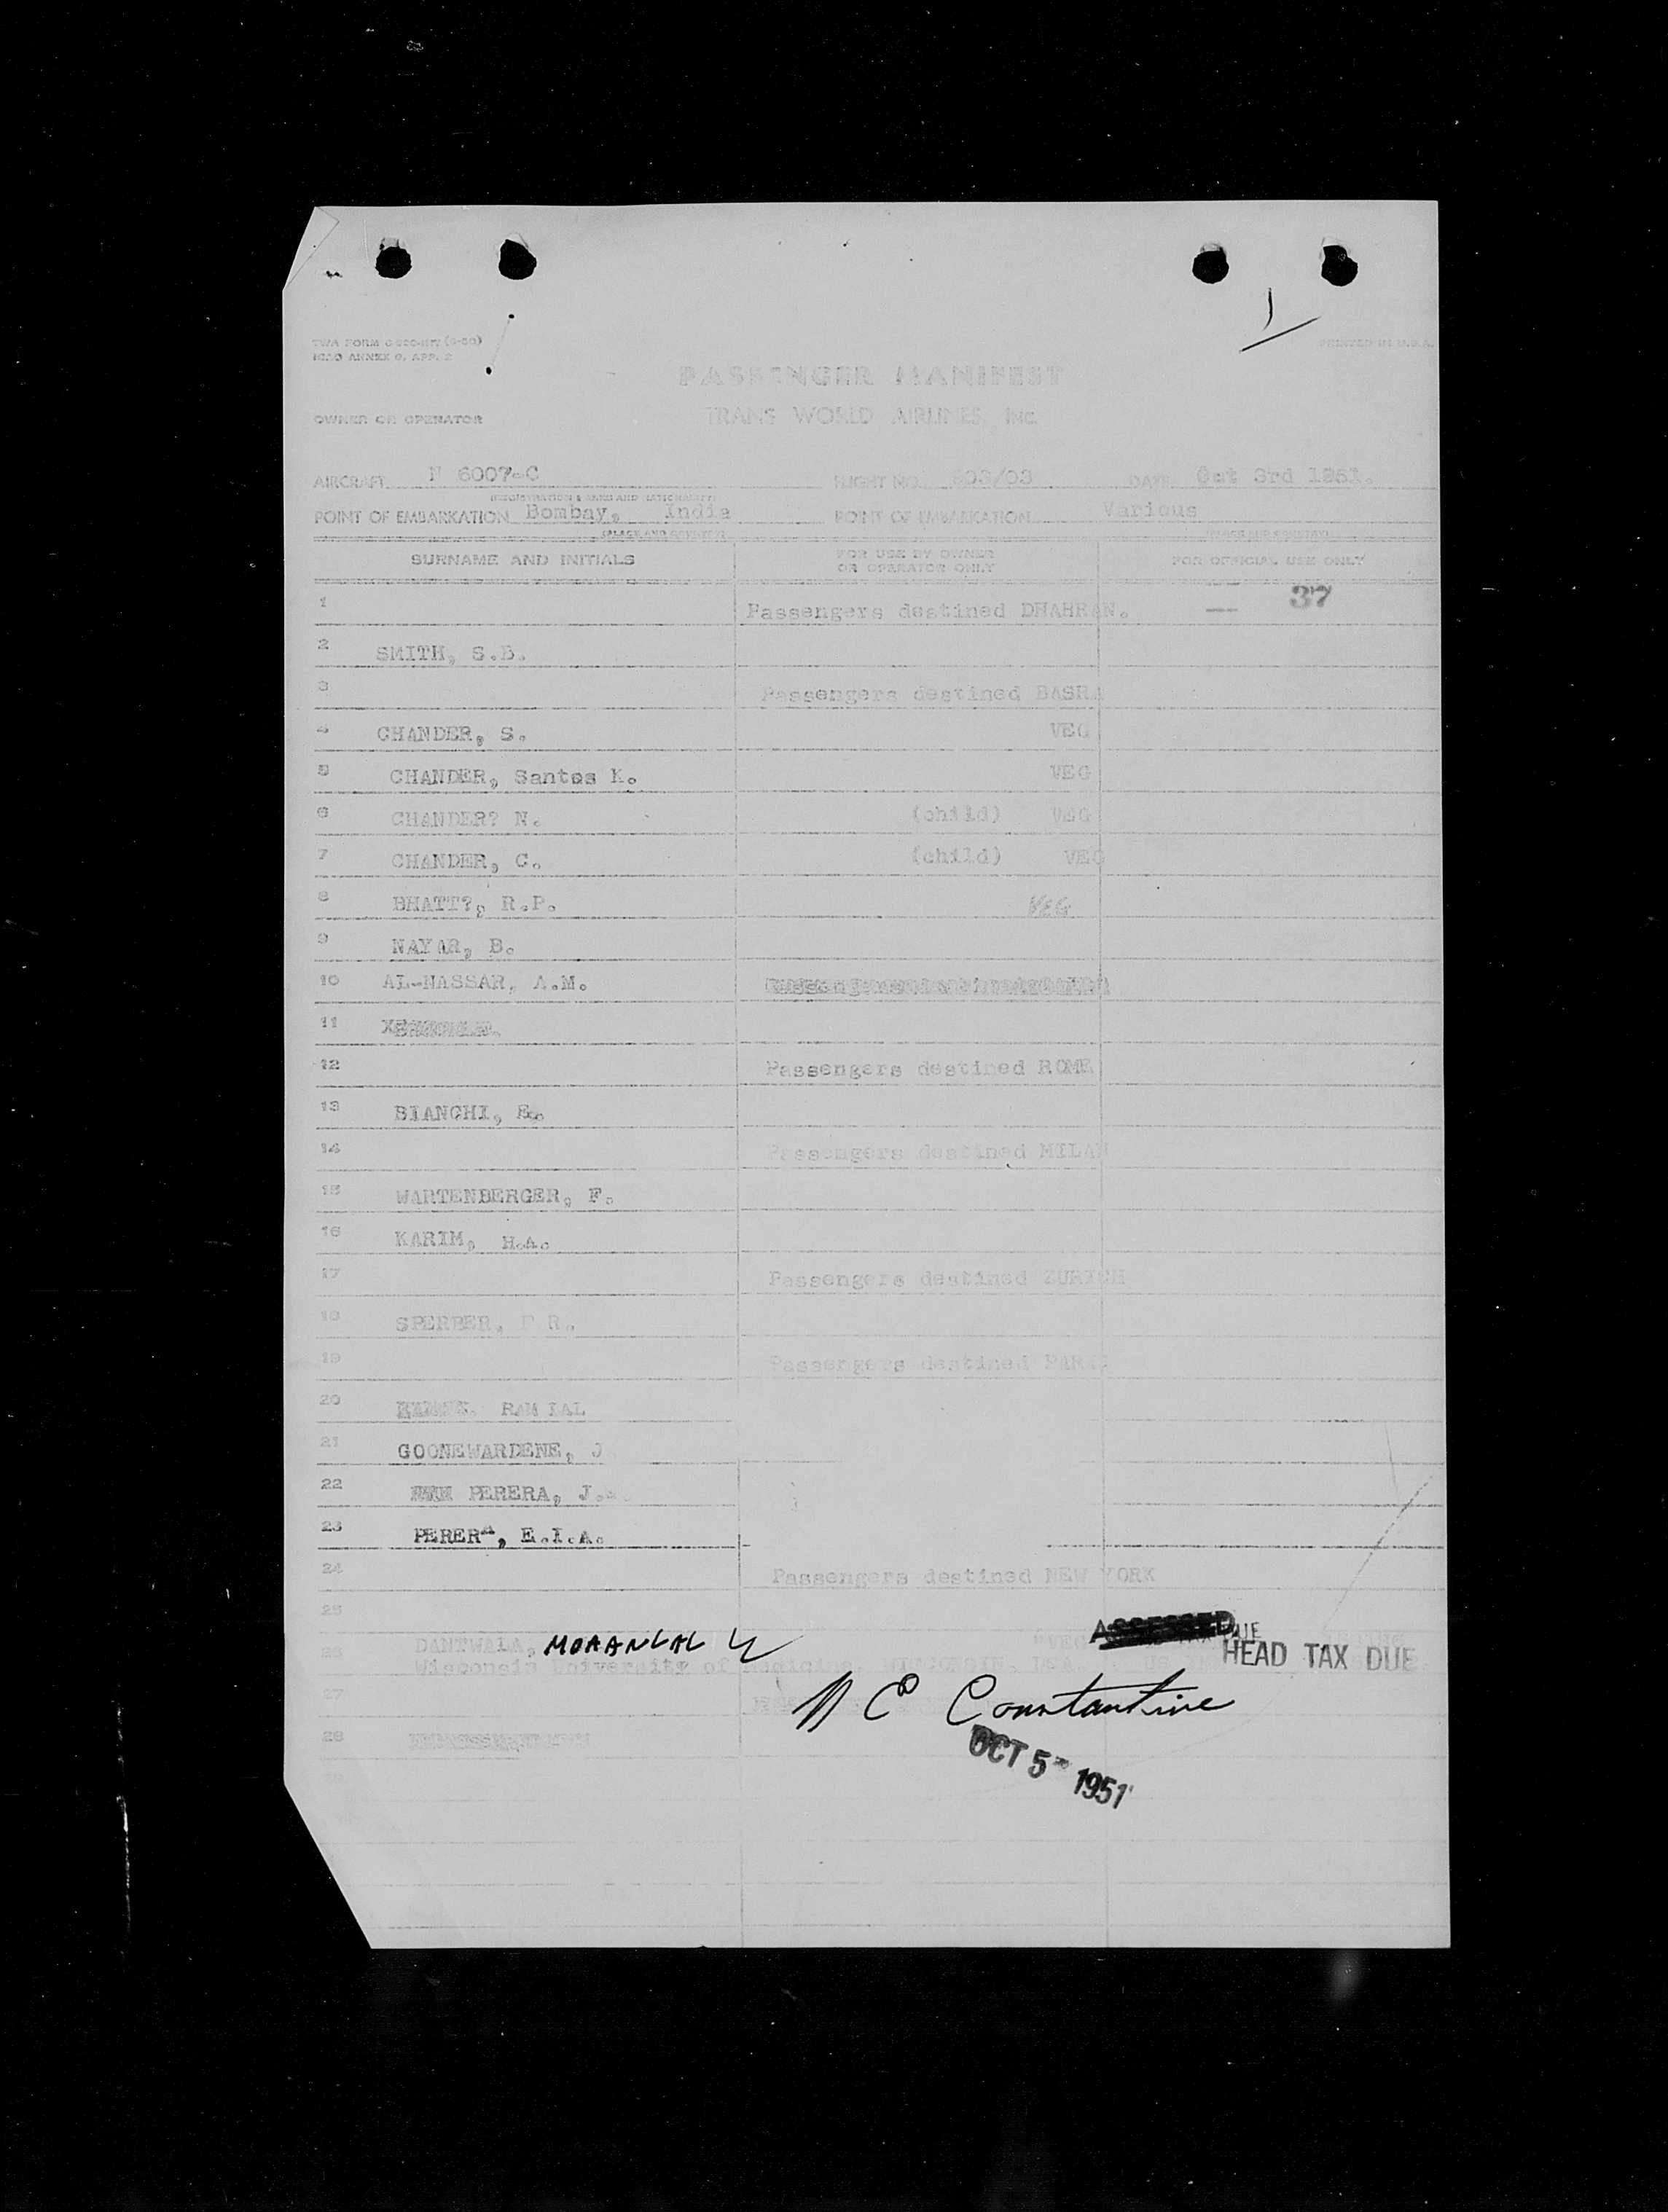 TWA FORM
ICAO ANNEX 9, APP. 2
PRINTED IN U.S.A.
PASSENGER MANIFEST
OWNER OR OPERATOR TRANS WORLD AIRLINES, INC.
AIRCRAFT N 6007-C FLIGHT NO. 03/03 DATE Oct 3rd 1951.
(REGISTRATION MARK AND NATIONALITY)
POINT OF EMBARKATION Bombay, India POINT OF EMBARKATION Various
(PLACE AND COUNTRY) (PLACE AND COUNTRY)
SURNAME AND INITIALS FOR USE BY OWNER OR OPERATOR ONLY FOR OFFICIAL USE ONLY
1 Passengers destined DHAHRAN. -- 37
2 SMITH, S.B.
3 Passengers destined BASRA
4 CHANDER, S. VEG
5 CHANDER, Santos K. VEG
6 CHANDER? N. (child) VEG
7 CHANDER, C. (child) VEG
8 BHATT?, R.P. VEG
9 NAYAR, B.
10 AL-NASSAR, A.M.
11
12 Passengers destined ROME
13 BIANCHI, E.
14 Passengers destined MILAN
15 WARTENBERGER, F.
16 KARIM, H.A.
17 Passengers destined ZURICH
18 SPERBER, F R.
19 Passengers destined PARIS
20 RAM LAL
21 GOONEWARDENE, J
22 PERERA, J.
23 PERERA, E.I.A.
24 Passengers destined NEW YORK
25
26 DANTWALA, MOHANLAL "VEG ASSESSED
Wisconsin University of Medicine, WISCONSIN, USA. HEAD TAX DUE
27
N C Constantine
28
OCT 5 - 1951